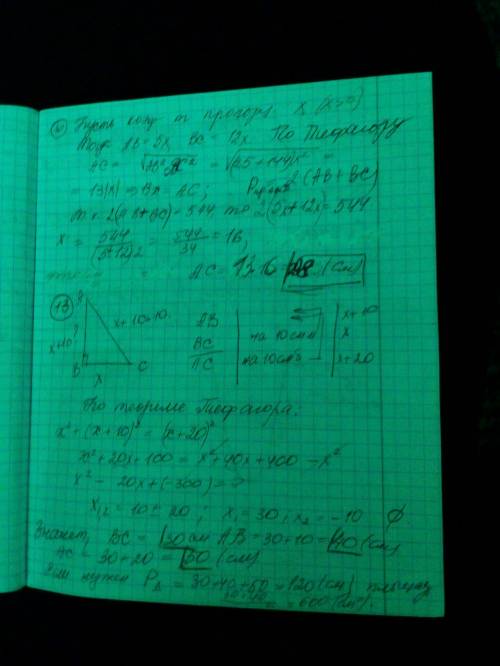 Пусть коэф. т прогорц. x (x>0)
Тогда AB = 5x, BC = 12x. По Теореме Пифагору
AC = √AB²+ = √(25+144)x² =
= 13|x| => BD = AC; P = 2(AB + BC)
т.к. 2(AB+BC) = 544, то 2(5x+12x) = 544
x = 544/(5+12)2 = 544/34 = 16,
AC = 13·16 = 208 (см)
13
A
x+10+10
x+10
B
x
C
AB
BC
AC
на 10см
на 10см
x+10
x
x+20
По теореме Пифагора:
x² + (x+10)² = (x+20)²
x² + 20x + 100 = x² + 40x + 400 - x²
x² - 20x + (-300) = 0
x₁,₂ = 10 ± 20; x₁ = 30; x₂ = -10 ∅.
Значит, BC = 30 см AB = 30+10 = 40 (см)
AC = 30+20 = 50 (см)
Если нужен P△ = 30+40+50 = 120 (см)
= 600 (см²).